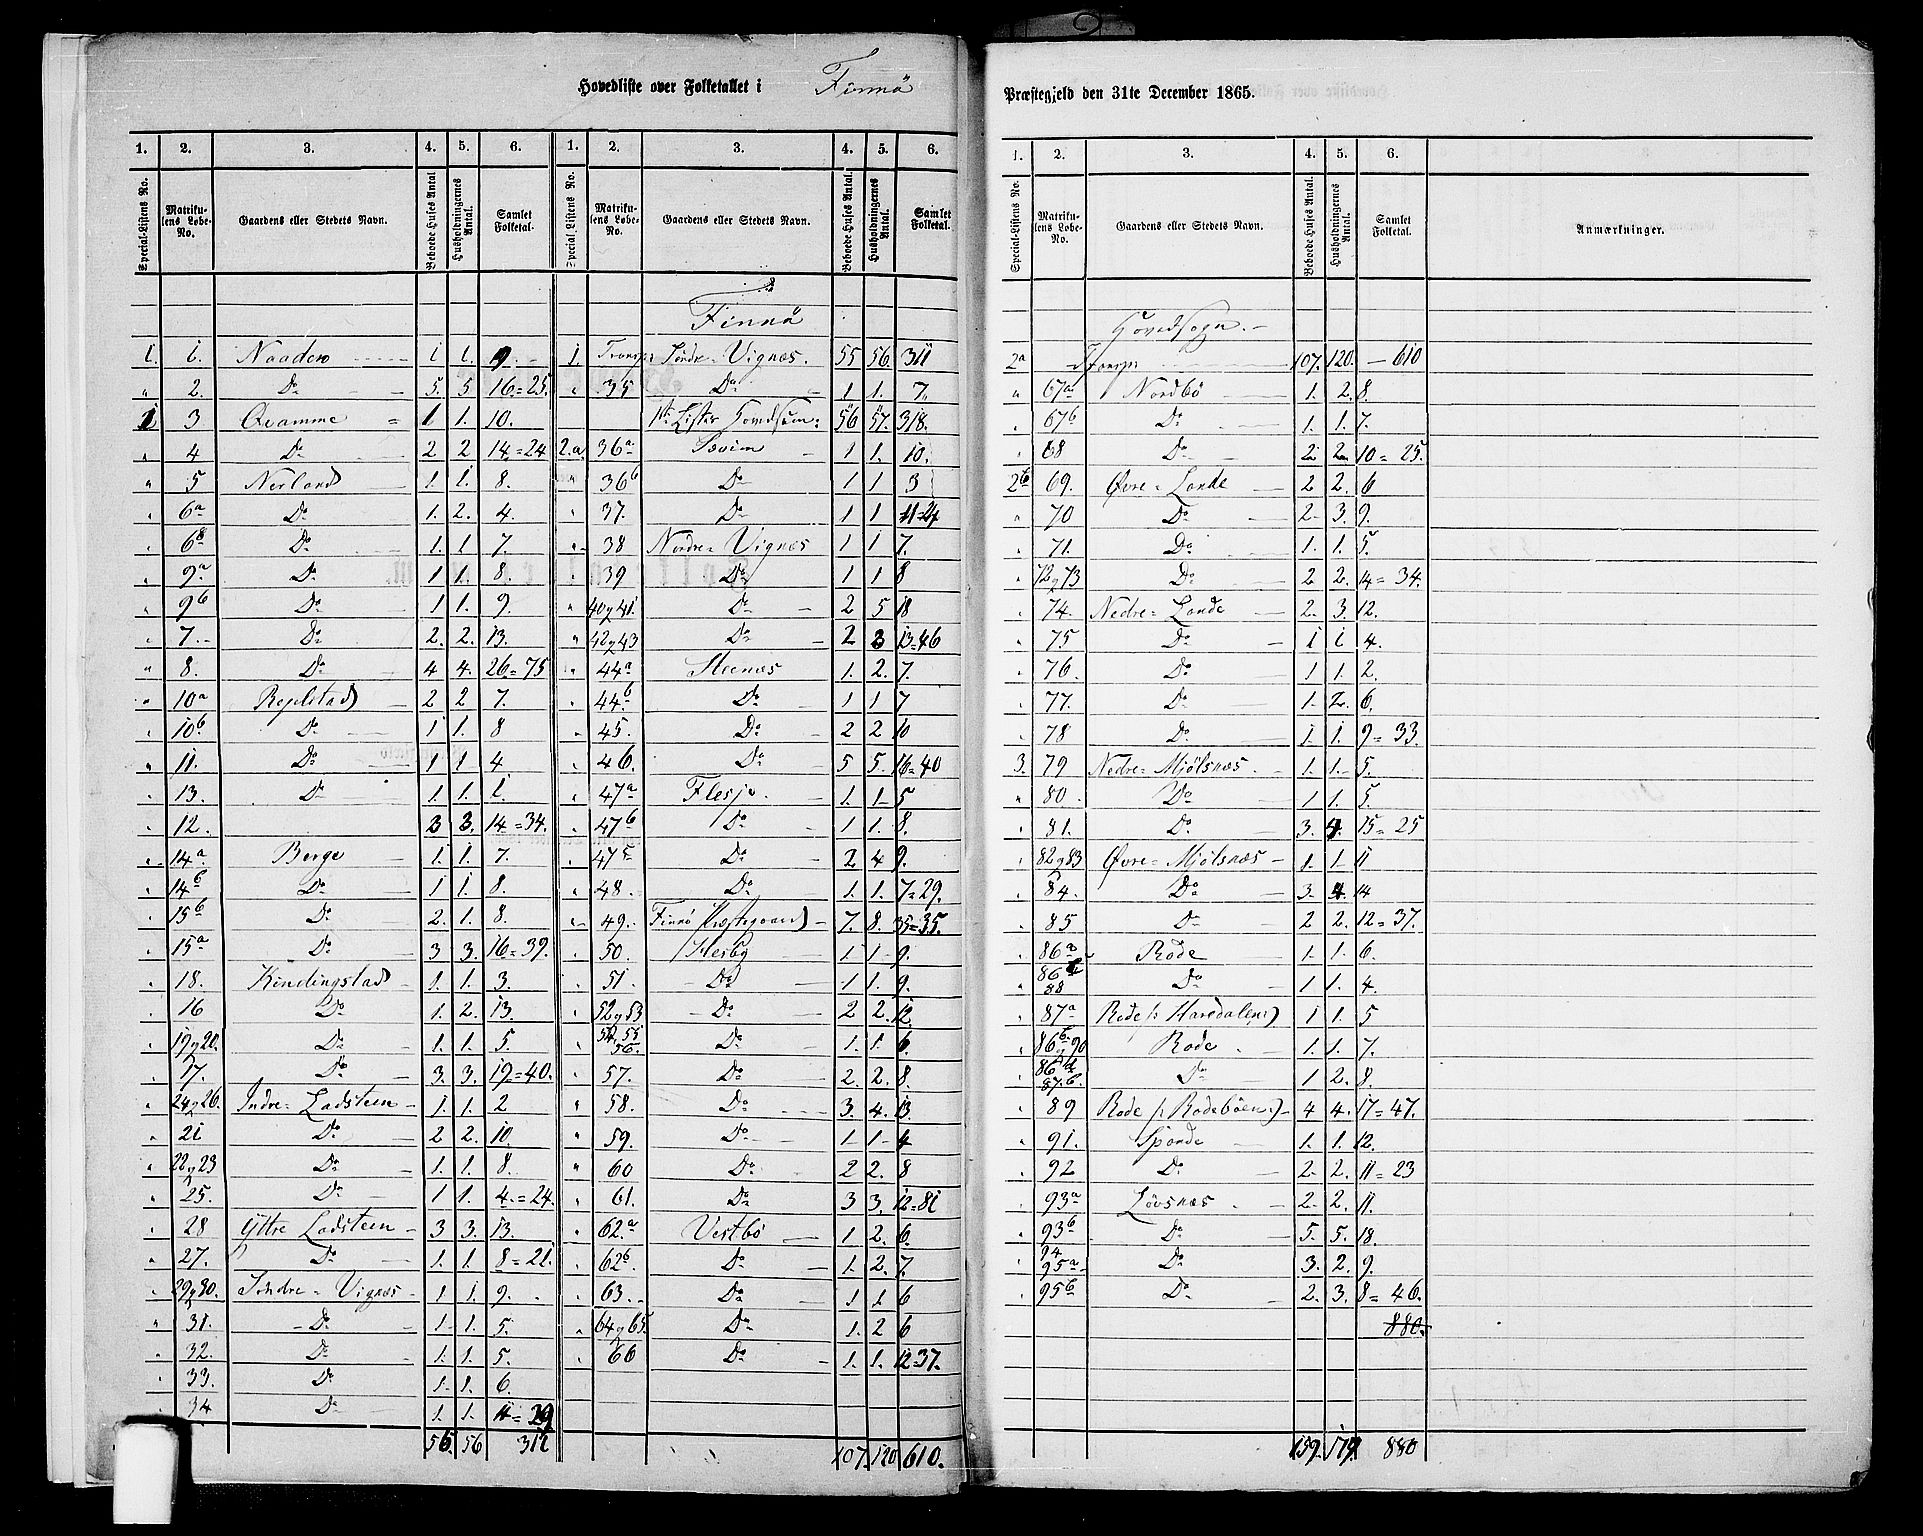 Hovedliste over Folketallet i Finnö
Præstegjeld den 31te December 1865.
1. 2. 3. 4. 5. 6. 1. 2. 3. 4. 5. 6.
Special-Listens No. Matrikulens Løbe-No. Gaardens eller Stedets Navn. Beboede Huses Antal Husholdningernes Antal. Samlet Folketal. Special Listens No. Matrikulens Løbe-No. Gaardens eller Stedets Navn. Beboede Huses Antal. Husholdningernes Antal. Samlet Folketal.
1. 1. Naaden 1 1. 9
" 2. Do 5. 5 16 = 25.
1 3 Qvamme 1 1. 10.
" 4 Do 2 2 14 = 24
" 5 Nerland 1. 1. 8.
" 6a Do 1. 2. 4.
" 6b Do 1. 1 7.
" 9a Do 1 1 8.
" 9b Do 1 1. 9.
" 7. Do 2. 2. 13.
" 8. Do 4 4. 26. = 75
" 10a Regelstad 2 2 7.
" 10b Do 1 1. 8
" 11. Do 1 1 4
" 13. Do 1. 1. 1.
" 12. 3 3. 14 = 34.
" 14a Berge 1. 1. 7.
" 14b Do 1 1. 8.
" 15b Do 2. 1. 8.
" 15a Do 3 3. 16 = 39.
" 18. Kindingstad 1. 1. 3.
" 16 Do 1. 2. 13.
" 19 g 20. Do 1. 1. 5.
" 17. Do 3. 3. 19 = 40.
" 24 g 26. Indre Ladsteen 1. 1. 2
" 21 Do 2 2. 10.
" 22 g 23 Do 1. 1. 8.
" 25. Do 1 1. 4. = 24.
" 28 Ÿttre Ladsteen 3 3. 13.
" 27. Do 1. 1. 8 = 21.
" 29 g 30. Söndre Vignæs 1 1. 9.
" 31. Do 1. 1. 5.
" 32. Do 1. 1. 5.
" 33. Do 1. 1. 6.
" 34 Do 1. 1. 4 = 29
56. 56 312
Finnö
1. Transp. Söndre Vignæs. 55 56. 311
" 35 Do 1 1. 7.
1ste Liste Hovedsum: 56 57. 318.
2.a. 36a 1 1. 10.
" 36b Do 1 1 3
" 37. Do 1 1 11 = 24
" 38 Nordre Vignæs 1 1 7.
" 39 Do 1 1 8
" 40 g 41. Do 2 5 18
" 42 g 43 Do 2 3 13 = 46
" 44a Steenæs 1. 2. 7.
" 44b Do 1 1 7
" 45. Do 2 2 10
" 46. Do 5 5. 16 = 40
" 47a Flesje 1. 1 5
" 47b Do 1 1. 8.
" 47c Do 2 4 9.
" 48. Do 1. 1. 7 = 29.
" 49. Finnö Præstegaard 7. 8. 35 = 35.
" 50. Hesby 1 1 9.
" 51. Do 1 1. 9.
" 52 g 53 Do 2 2. 12.
" 54, 55 56. Do 1. 1. 6.
" 57. Do 2. 2. 8.
" 58. Do 3. 4. 13.
" 59. Do 1 1 4
" 60 Do 2 2. 8
" 61. Do 3 3. 12 = 81
" 62.a Vestbö 1 2. 6.
" 62b. Do 1. 2. 7.
" 63. Do 1 1 6
" 64 g 65. Do 1. 2 6
" 66 Do 1. 1. 12 = 37.
107. 120 610.
1. 2. 3. 4. 5. 6.
Special-Listens No. Matrikulens Løbe-No. Gaardens eller Stedets Navn. Beboede Huses Antal. Husholdningernes Antal. Samlet Folketal. Anmærkninger.
Hovedsogn.
2a Transp: 107. 120. 610
" 67a Nordbö 1. 2. 8.
" 67b Do 1. 1. 7.
" 68 Do 2 2 10 = 25.
2b 69. Øvre Lande 2 2. 6
" 70 Do 2 3. 9.
" 71. Do 1. 1. 5.
" 72 g 73 Do 2 2. 14 = 34.
" 74. Nedre Lande 2. 3. 12.
" 75 Do 1 1 4
" 76 Do 1 1 2.
" 77. Do 1. 2. 6.
" 78 Do 1. 1. 9 = 33.
3. 79 Nedre Mjölsnæs 1. 1. 5.
" 80 Do 1 1. 5.
" 81. Do 3. 4. 15 = 25
" 82 g 83 Øvre Mjölsnæs 1. 1 11
" 84. Do 3. 4. 14
" 85 Do 2 2. 12 = 37.
" 86a Rode 1. 1. 6.
" 86c 88 Do 1 1. 4.
" 87a Rode (: Haredalen:) 1 1. 5
" 86b g 90 Rode 1. 1. 7.
" 86d 87.b. Do 1 2. 8.
" 89 Rode (: Rodebøen:) 4 4. 17 = 47.
" 91. Spande 1. 1. 12.
" 92 Do 2. 2. 11 = 23
" 93a Lövsnæs 2. 2. 11.
" 93b Do 5. 5. 18.
" 94 95a Do 3. 2. 9.
" 95b Do 2. 3. 8 = 46.
880.
159. 179. 880